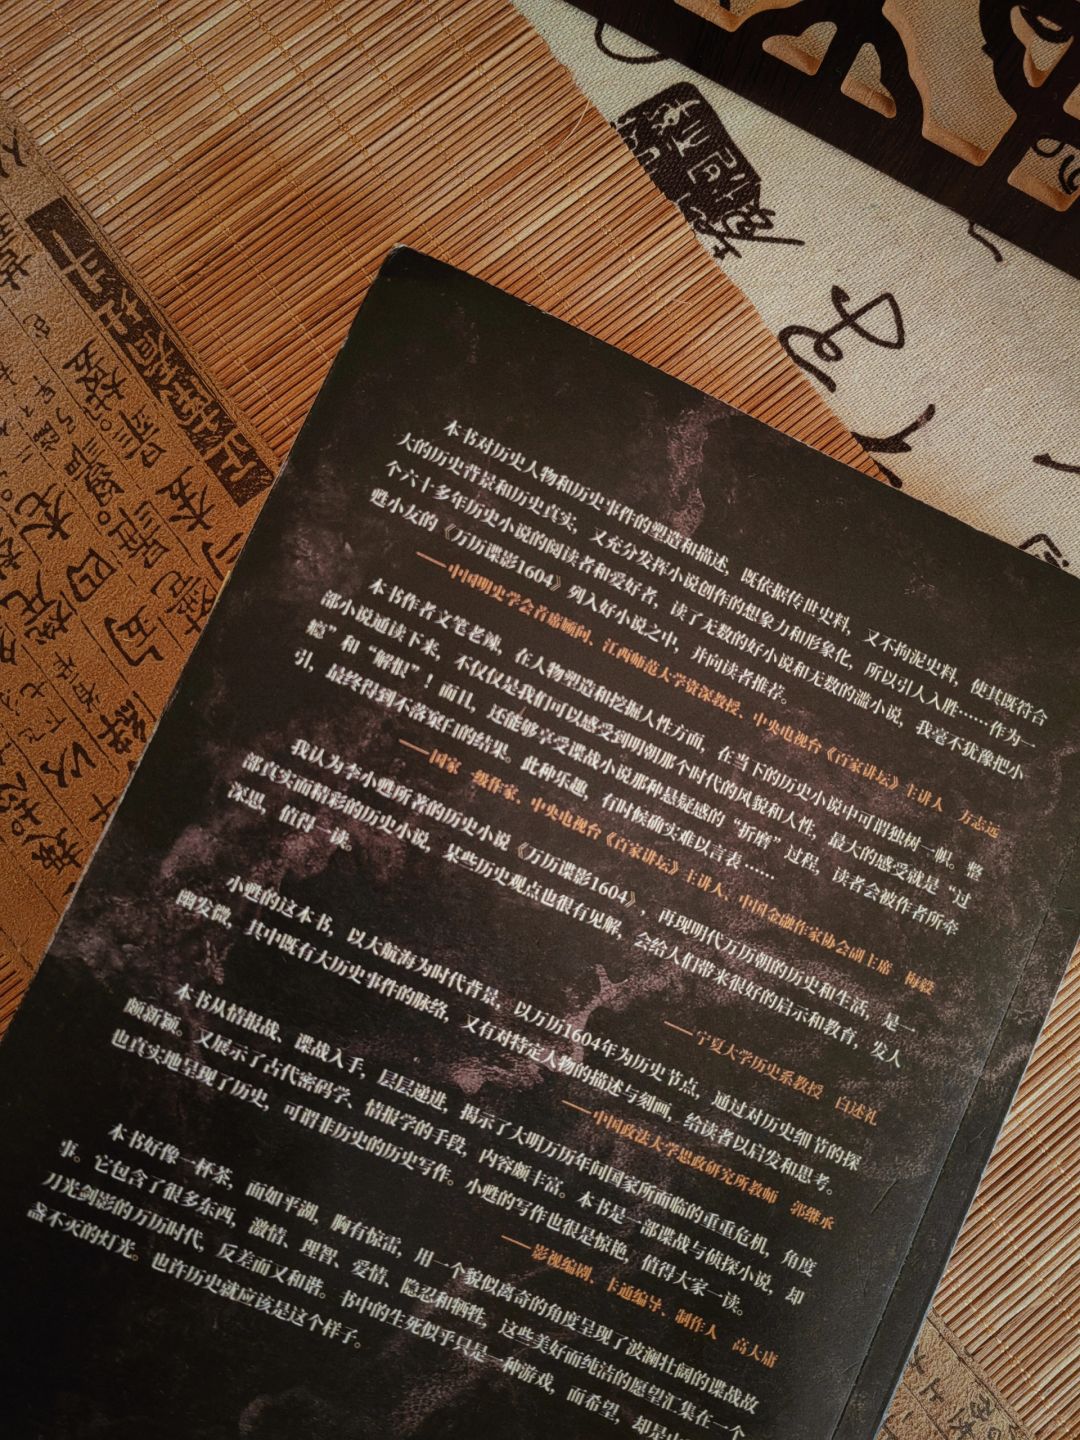 本书对历史人物和历史事件的塑造和描述，既依据传世史料，又不拘泥史料，使其既符合
大的历史背景和历史真实，又充分发挥小说创作的想象力和形象化，所以引人入胜……作为一
个六十多年历史小说的阅读者和爱好者，读了无数的好小说和无数的滥小说，我毫不犹豫把小
甦小友的《万历谍影1604》列入好小说之中，并向读者推荐。
——中国明史学会首席顾问、江西师范大学资深教授、中央电视台《百家讲坛》主讲人　方志远
本书作者文笔老辣，在人物塑造和挖掘人性方面，在当下的历史小说中可谓独树一帜。整
部小说通读下来，不仅仅是我们可以感受到明朝那个时代的风貌和人性，最大的感受就是“过
瘾”和“解恨”！而且，还能够享受谍战小说那种悬疑感的“折磨”过程，读者会被作者所牵
引，最终得到不落窠臼的结果。此种乐趣，有时候确实难以言表……
——国家一级作家、中央电视台《百家讲坛》主讲人、中国金融作家协会副主席　梅毅
我认为李小甦所著的历史小说《万历谍影1604》，再现明代万历朝的历史和生活，是一
部真实而精彩的历史小说，某些历史观点也很有见解，会给人们带来很好的启示和教育，发人
深思，值得一读。
——宁夏大学历史系教授　白述礼
小甦的这本书，以大航海为时代背景，以万历1604年为历史节点，通过对历史细节的探
幽发微，其中既有大历史事件的脉络，又有对特定人物的描述与刻画，给读者以启发和思考。
——中国政法大学思政研究所教师　郭继承
本书从情报战、谍战入手，层层递进，揭示了大明万历年间国家所面临的重重危机，角度
颇新颖，又展示了古代密码学、情报学的手段，内容颇丰富。本书是一部谍战与侦探小说，却
也真实地呈现了历史，可谓非历史的历史写作。小甦的写作也很是惊艳，值得大家一读。
——影视编剧、卡通编导、制作人　高大庸
本书好像一杯茶，面如平湖，胸有惊雷，用一个貌似离奇的角度呈现了波澜壮阔的谍战故
事。它包含了很多东西，激情、理智、爱情、隐忍和牺牲，这些美好而纯洁的愿望汇集在一个
刀光剑影的万历时代，反差而又和谐。书中的生死似乎只是一种游戏，而希望，却是
盏不灭的灯光。也许历史就应该是这个样子。